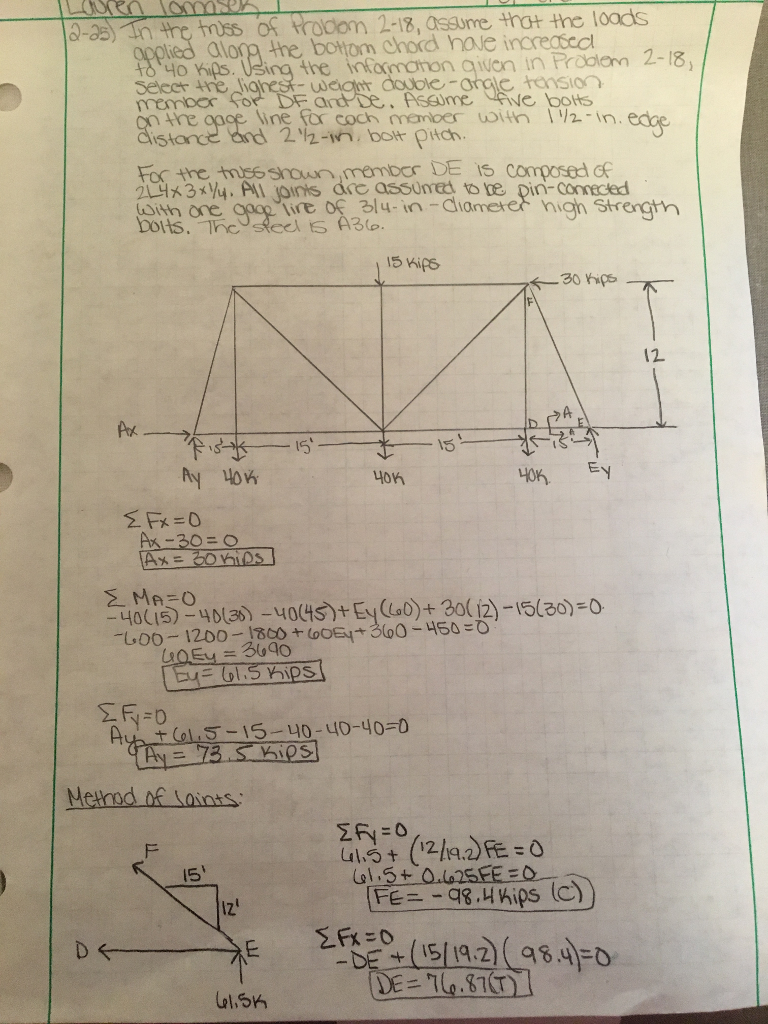 Lauren Tomasek
2-25) In the truss of Problem 2-18, assume that the loads
applied along the bottom chord have increased
to 40 kips. Using the information given in Problem 2-18,
select the lighest-weight double-angle tension
member for DF and DE. Assume five bolts
on the gage line for each member with 1 1/2-in. edge
distance and 2 1/2-in. bolt pitch.
For the truss shown, member DE is composed of
2L4x3x1/4. All joints are assumed to be pin-connected
with one gage line of 3/4-in-diameter high strength
bolts. The steel is A36.
15 kips
30 kips
F
12
Ax
D
A
A
E
15'
15'
15'
15'
Ay
40K
40K
40K
Ey
ΣFx=0
Ax-30=0
Ax=30 kips
ΣMA=0
-40(15)-40(30)-40(45)+Ey(60)+30(12)-15(30)=0
-600-1200-1800+60Ey+360-450=0
60Ey=3690
Ey=61.5 kips
ΣFy=0
Ay+61.5-15-40-40-40=0
Ay=73.5 kips
Method of Joints:
F
15'
12'
D
E
61.5K
ΣFy=0
61.5+(12/19.2)FE=0
61.5+0.625FE=0
FE=-98.4 kips (C)
ΣFx=0
-DE+(15/19.2)(98.4)=0
DE=76.87(T)